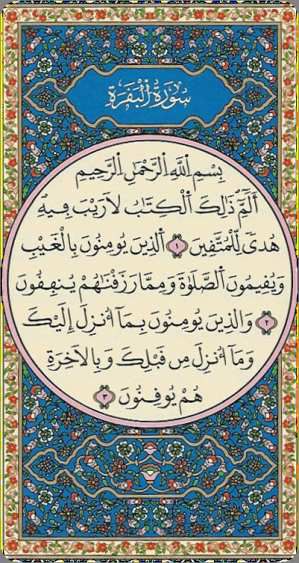 سُورَةُ الْبَقَرَةِ
بِسْمِ اِللَّهِ اِلرَّحْمَٰنِ اِلرَّحِيمِ
أَلَٓمِّٓ ذَٰلِكَ اَلْكِتَٰبُ لَا رَيْبَ فِيهِ
هُدىً لِّلْمُتَّقِينَ ١ اَلذِينَ يُومِنُونَ بِالْغَيْبِ
وَيُقِيمُونَ اَلصَّلَوٰةَ وَمِمَّا رَزَقْنَٰهُمْ يُنفِقُونَ
٢ وَالذِينَ يُومِنُونَ بِمَآ أُنزِلَ إِلَيْكَ
وَمَآ أُنزِلَ مِن قَبْلِكَ وَبِالَاخِرَةِ
هُمْ يُوقِنُونَ ٣